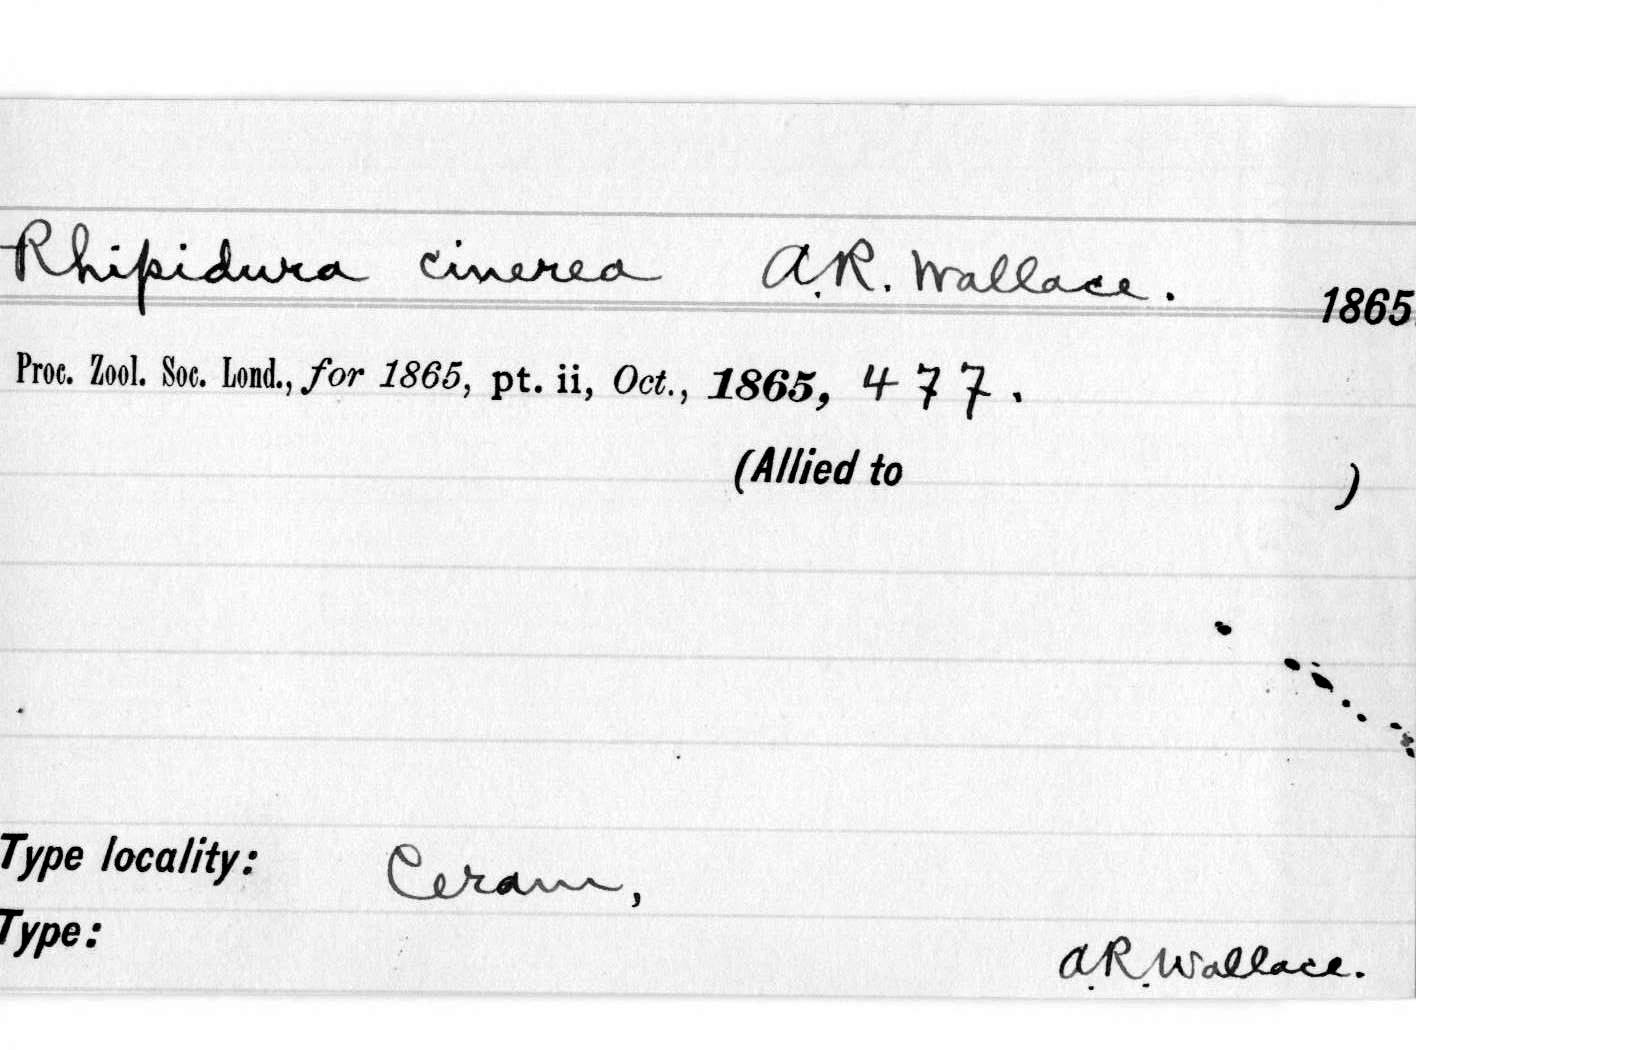 Rhipidura cinerea A.R. Wallace. 1865
Proc. Zool. Soc. Lond., for 1865, pt. ii, Oct., 1865, 477.
(Allied to )
Type locality: Ceram,
Type:
A.R. Wallace.